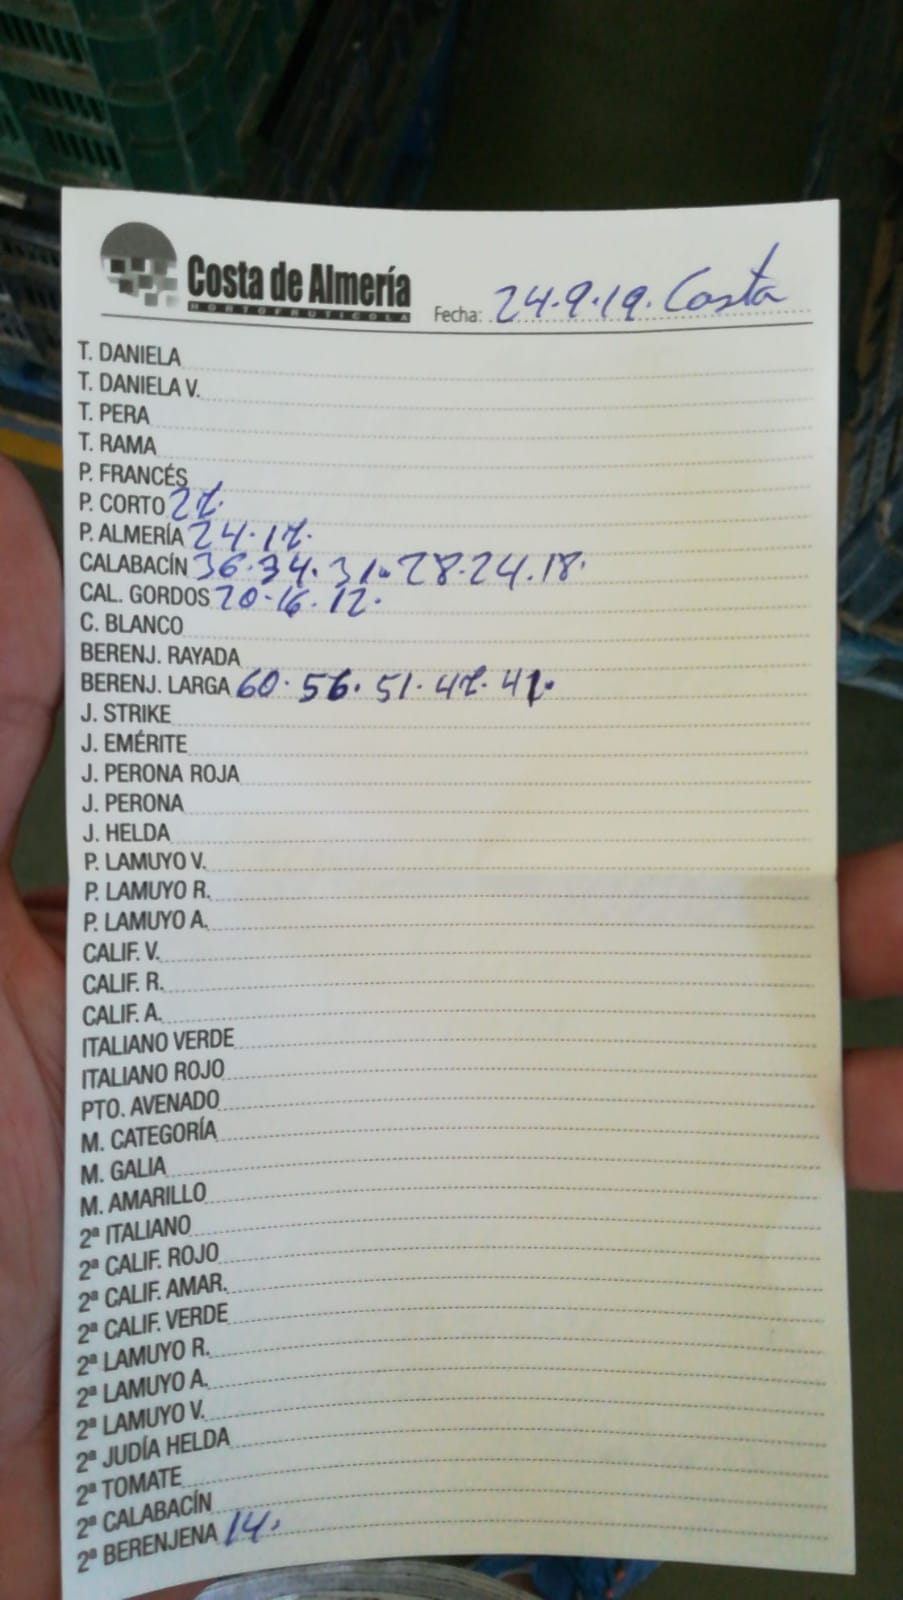 Costa de Almería
HORTOFRUTICOLA
Fecha: 24.9.19. Costa
T. DANIELA
T. DANIELA V.
T. PERA
T. RAMA
P. FRANCÉS
P. CORTO
P. ALMERÍA 24.
CALABACÍN 36.34.31.28.24.18.
CAL. GORDOS 20.16.12.
C. BLANCO
BERENJ. RAYADA
BERENJ. LARGA 60.56.51.
J. STRIKE
J. EMÉRITE
J. PERONA ROJA
J. PERONA
J. HELDA
P. LAMUYO V.
P. LAMUYO R.
P. LAMUYO A.
CALIF. V.
CALIF. R.
CALIF. A.
ITALIANO VERDE
ITALIANO ROJO
PTO. AVENADO
M. CATEGORÍA
M. GALIA
M. AMARILLO
2ª ITALIANO
2ª CALIF. ROJO
2ª CALIF. AMAR.
2ª CALIF. VERDE
2ª LAMUYO R.
2ª LAMUYO A.
2ª LAMUYO V.
2ª JUDÍA HELDA
2ª TOMATE
2ª CALABACÍN
2ª BERENJENA 14.